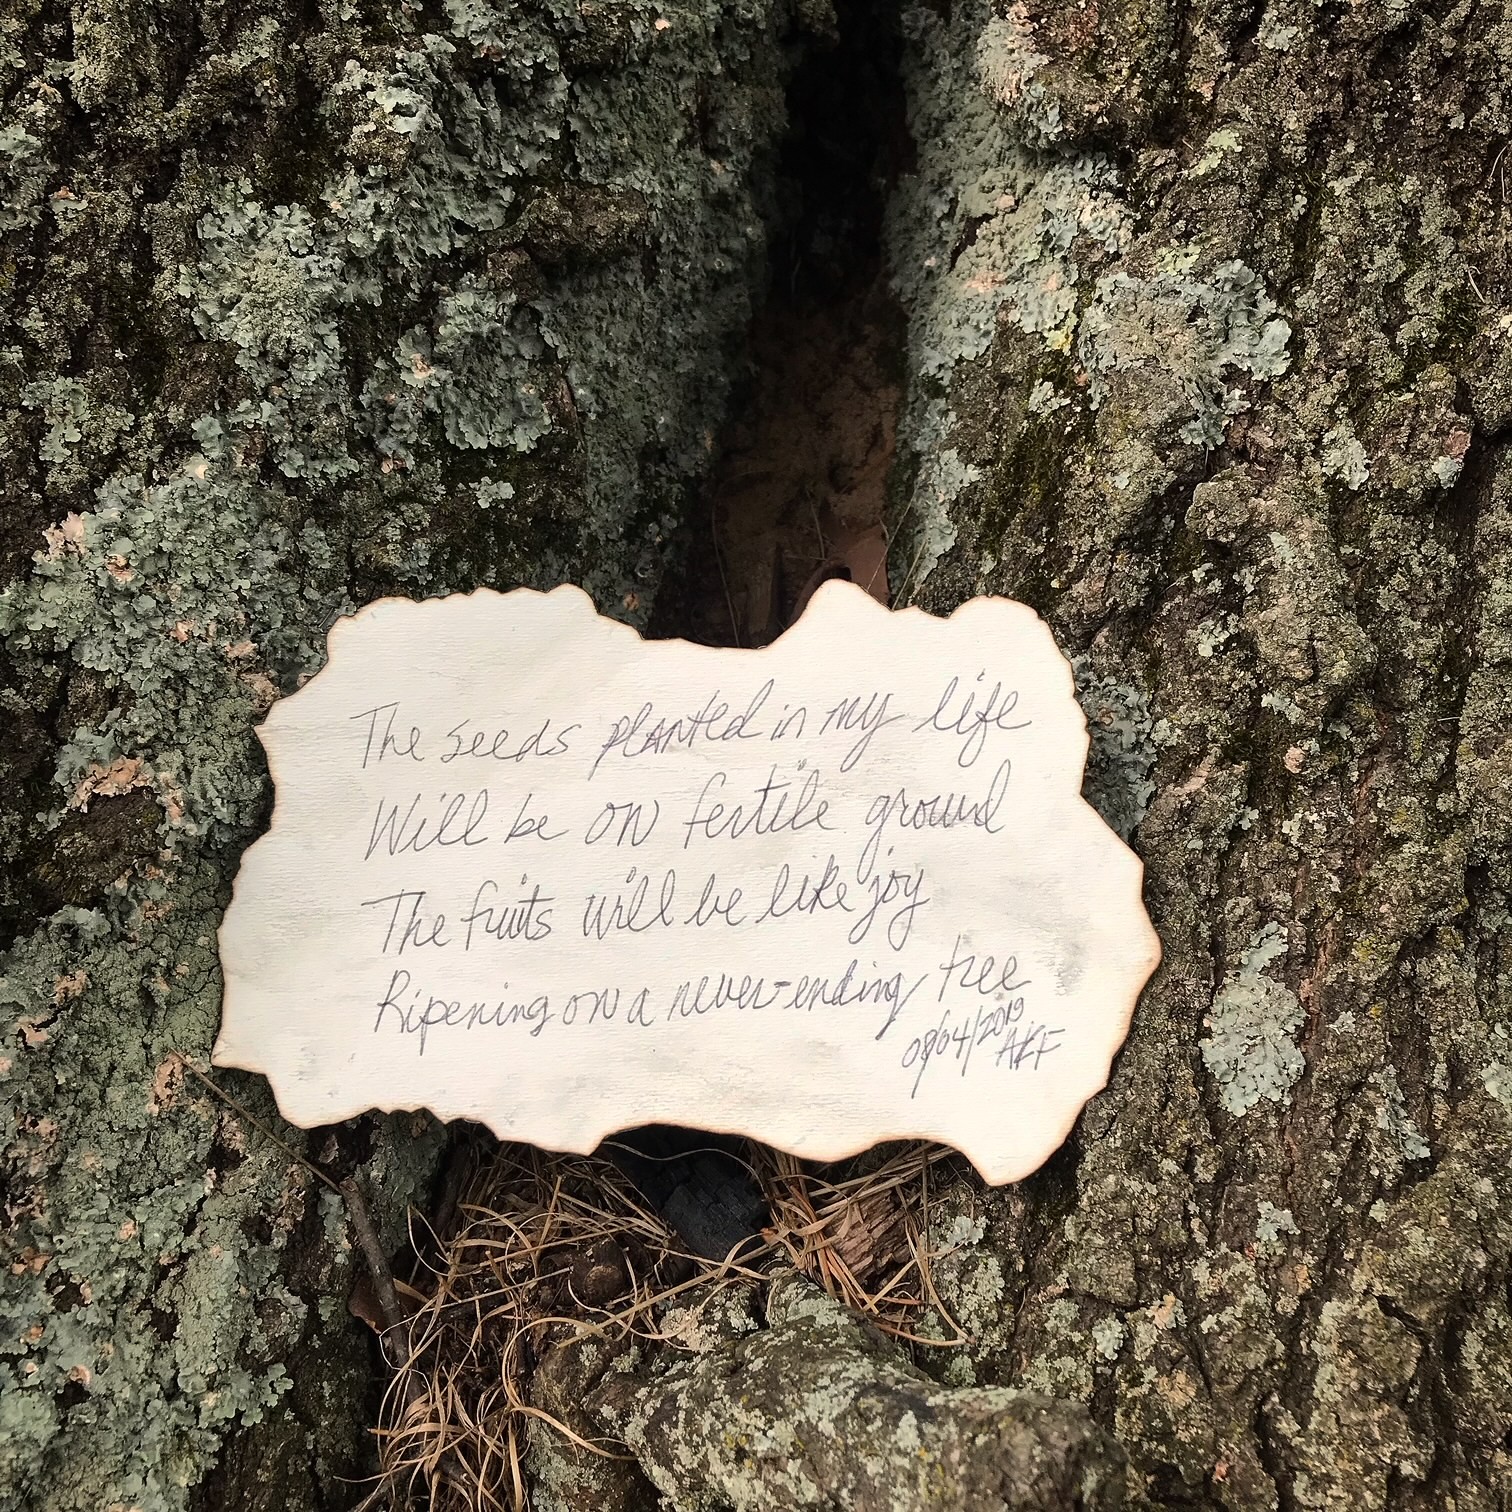 The seeds planted in my life
Will be on fertile ground
The fruits will be like joy
Ripening on a never-ending tree
08/04/2019
AKF